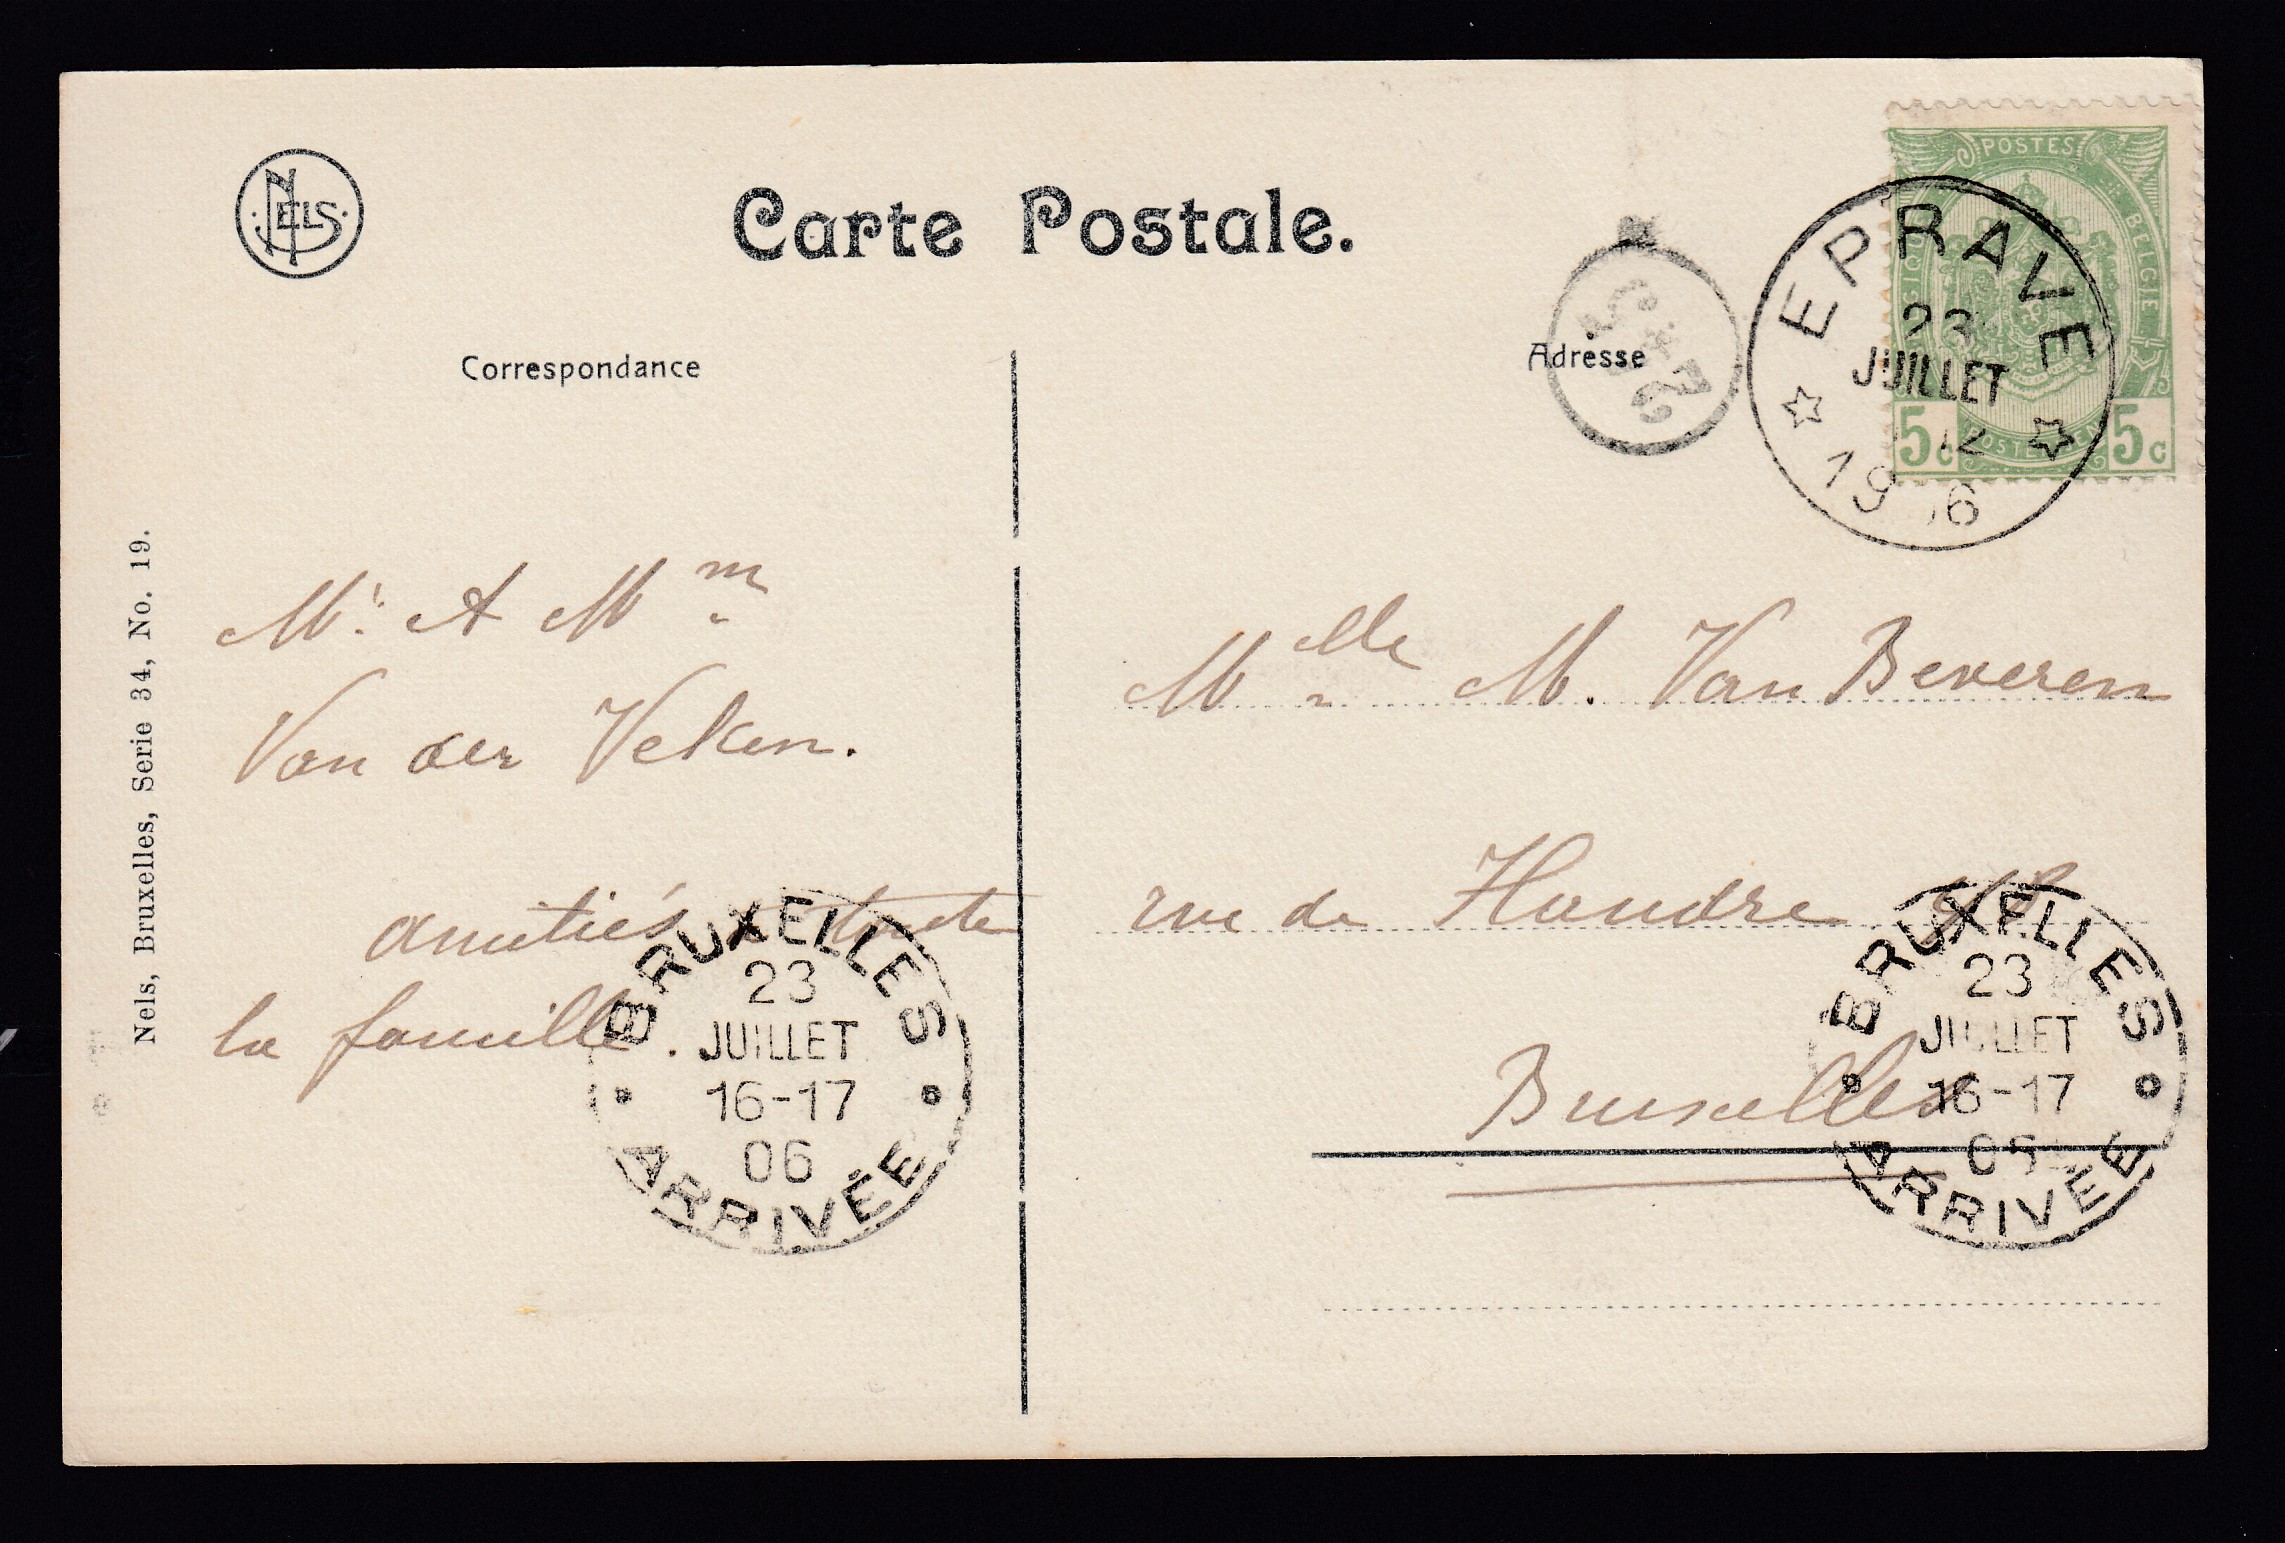 NELS
Carte Postale.
Correspondance
Adresse
POSTES
BELGIE
5c 5c
EPRAVE
23
JUILLET
12
19 6
Nels, Bruxelles, Serie 34, No. 19.
Mr. & Mm
Van der Veken.
amitiés toute
la famille.
Melle M. Van Beveren
rue de Flandre
Bruxelles
BRUXELLES
23
JUILLET
16-17
06
ARRIVÉE
BRUXELLES
23
JUILLET
16-17
ARRIVÉE